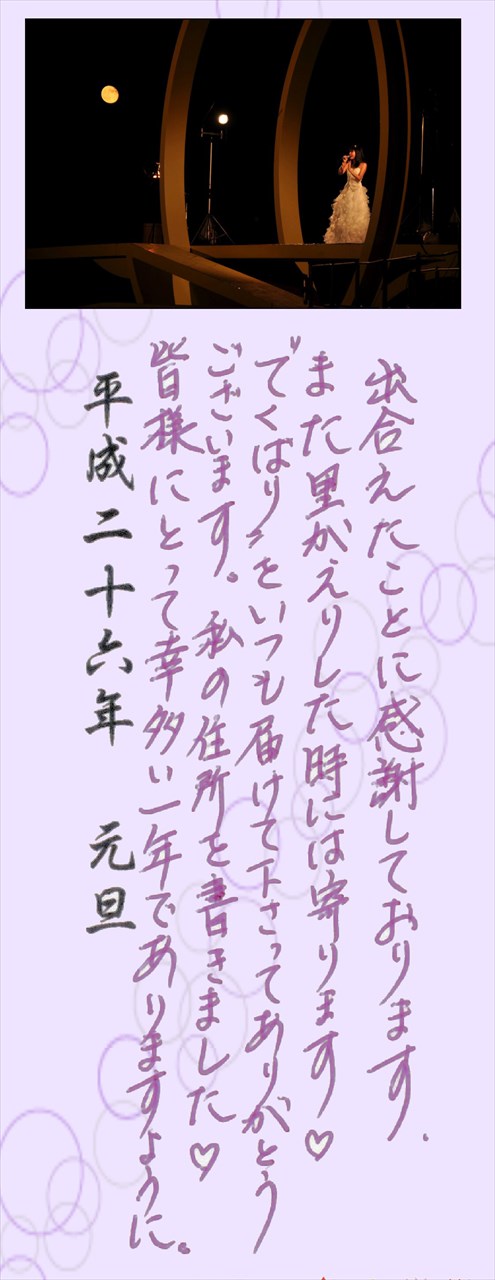 出合えたことに感謝しております.
また里がえりした時には寄ります♡
〝でくばり〟をいつも届けて下さってありがとう
ございます。私の住所を書きました♡
皆様にとって幸多い一年でありますように。
平成二十六年 元旦